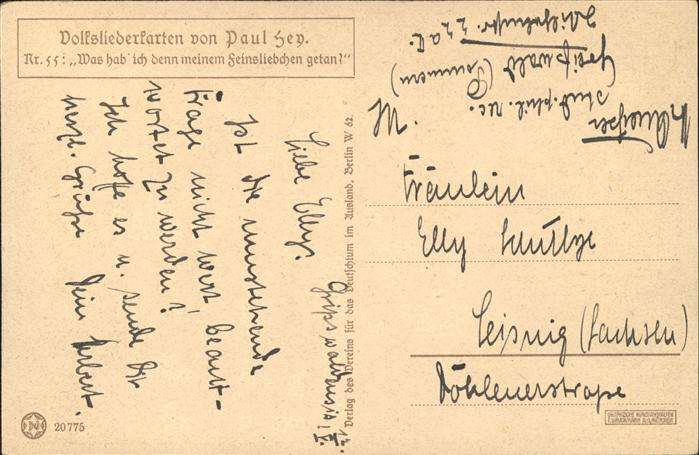 Volksliederkarten von Paul Hey.
Nr. 55: „Was hab' ich denn meinem Feinsliebchen getan?"
Liebe Elly!
Ist die umstehende
Frage nicht wert, beant-
wortet zu werden?
Ich hoffe es u. sende Dir
herzl. Grüße Dein Herbert.
Verlag des Vereins für das Deutschtum im Ausland, Berlin W 62.
stud. phil. rec.
Greifswald (Pommern)
M.
Fräulein
Elly Schultze
Leipzig (Sachsen)
Döhlenerstraße
20775